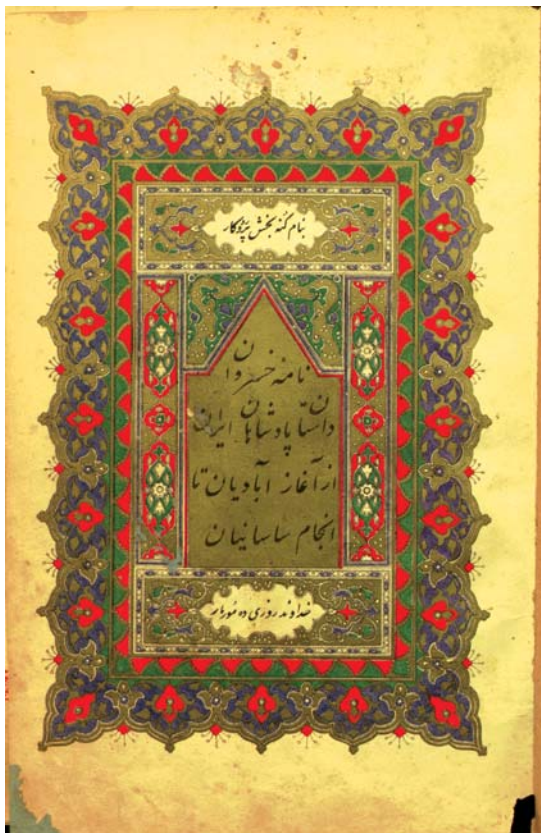 بنام گنه بخش پژوهکار
نامه خسروان
داستان پادشاهان ایران
از آغاز آبادیان تا
انجام ساسانیان
خداوند روزی ده مور و مار